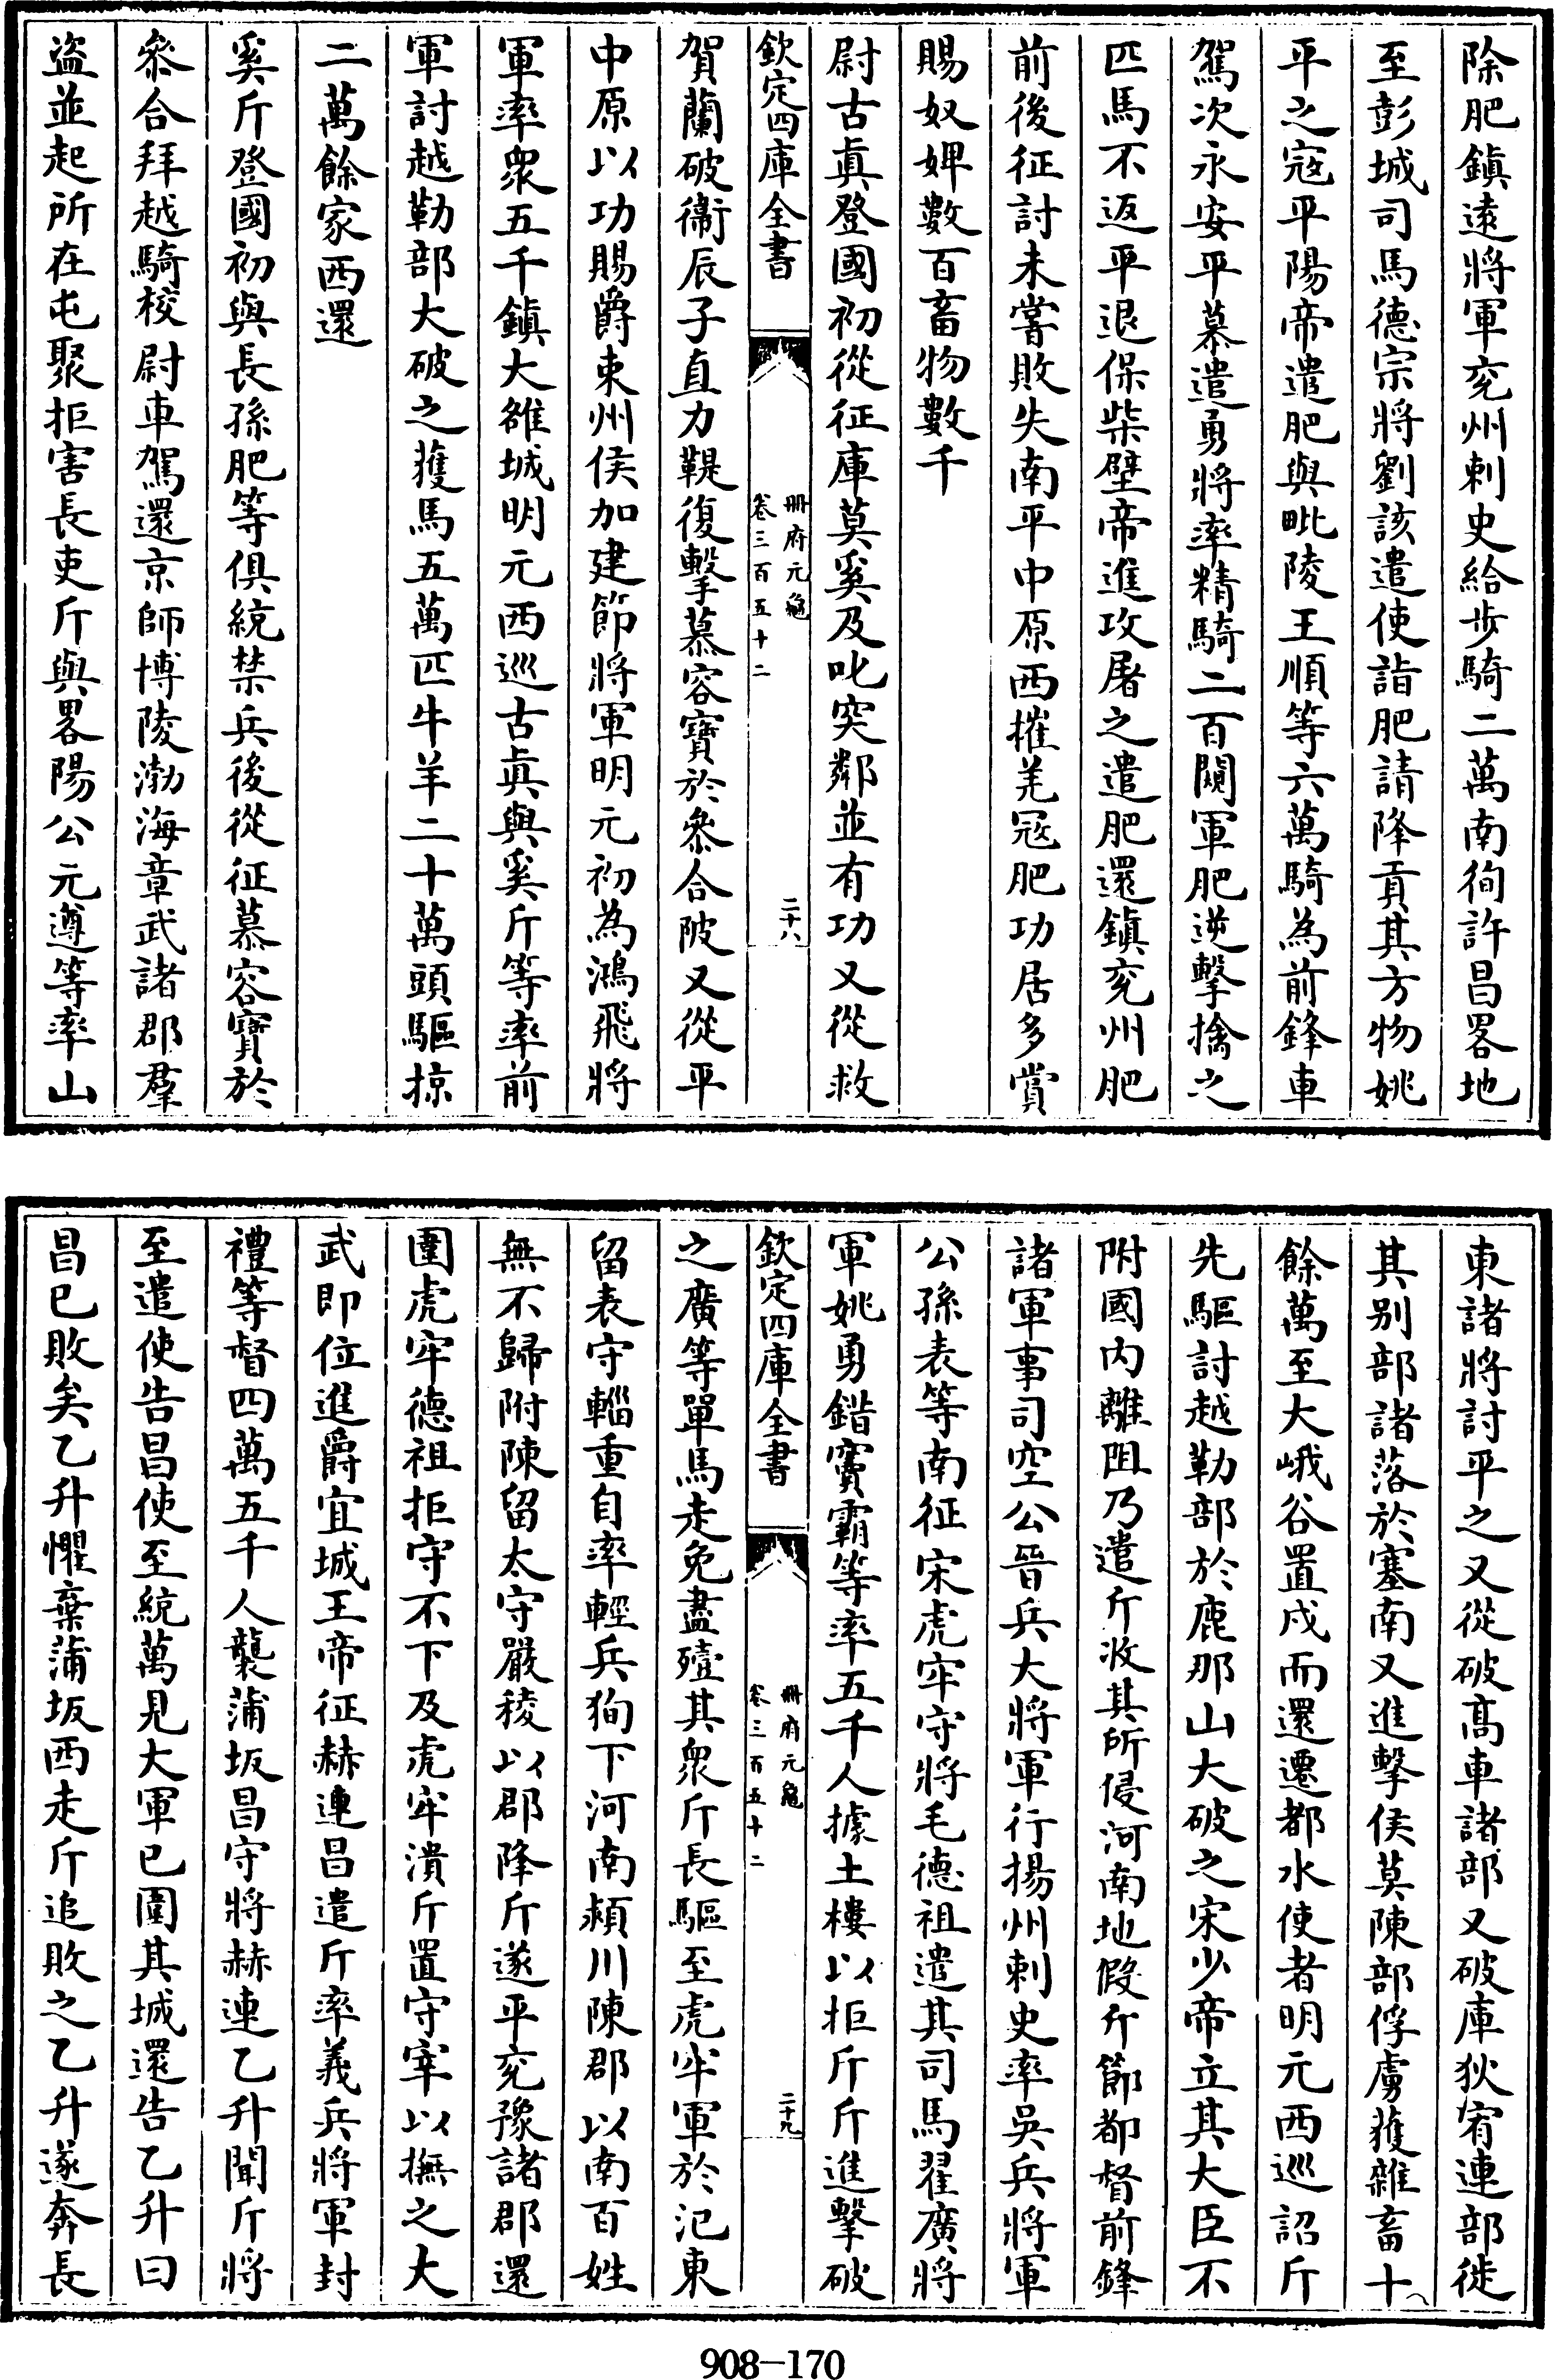 除肥鎮逺將軍兖州刺史給歩騎二萬南徇許昌畧地
至彭城司馬德宗將劉該遣使詣肥請降貢其方物姚
平之宼平陽帝遣肥與毗陵王順等六萬騎為前鋒車
駕次永安平募遣勇將率精騎二百闚軍肥逆擊擒之
匹馬不返平退保柴壁帝進攻屠之遣肥還鎮兖州肥
前後征討未嘗敗失南平中原西摧羌宼肥功居多賞
賜奴婢數百畜物數千
尉古真登國初從征庫莫奚及叱突鄰並有功又從救
欽定四庫全書
冊府元龜
卷三百五十二
二十八
賀蘭破衞辰子直力鞮復擊慕容寶於叅合陂又從平
中原以功賜爵束州侯加建節將軍明元初為鴻飛將
軍率衆五千鎮大雒城明元西巡古真與奚斤等率前
軍討越勒部大破之獲馬五萬匹牛羊二十萬頭驅掠
二萬餘家西還
奚斤登國初與長孫肥等俱統禁兵後從征慕容寶於
叅合拜越騎校尉車駕還京師博陵渤海章武諸郡羣
盜並起所在屯聚拒害長吏斤與畧陽公元遵等率山
東諸將討平之又從破髙車諸部又破庫狄宥連部徙
其别部諸落於塞南又進擊侯莫陳部俘虜獲雜畜十
餘萬至大峨谷置戍而還遷都水使者明元西巡詔斤
先驅討越勒部於鹿那山大破之宋少帝立其大臣不
附國内離阻乃遣斤收其所侵河南地假斤節都督前鋒
諸軍事司空公晉兵大將軍行揚州刺史率吳兵將軍
公孫表等南征宋虎牢守將毛德祖遣其司馬翟廣將
軍姚勇錯竇霸等率五千人據土樓以拒斤斤進擊破
欽定四庫全書
冊府元龜
卷三百五十二
二十九
之廣等單馬走免盡殪其衆斤長驅至虎牢軍於汜東
留表守輜重自率輕兵狥下河南潁川陳郡以南百姓
無不歸附陳留太守嚴稜以郡降斤遂平兖豫諸郡還
圍虎牢德祖拒守不下及虎牢潰斤置守宰以撫之大
武即位進爵宜城王帝征赫連昌遣斤率義兵將軍封
禮等督四萬五千人襲蒲坂昌守將赫連乙升聞斤將
至遣使告昌使至統萬見大軍已圍其城還告乙升曰
昌已敗矣乙升懼棄蒲坂西走斤追敗之乙升遂奔長
908—170